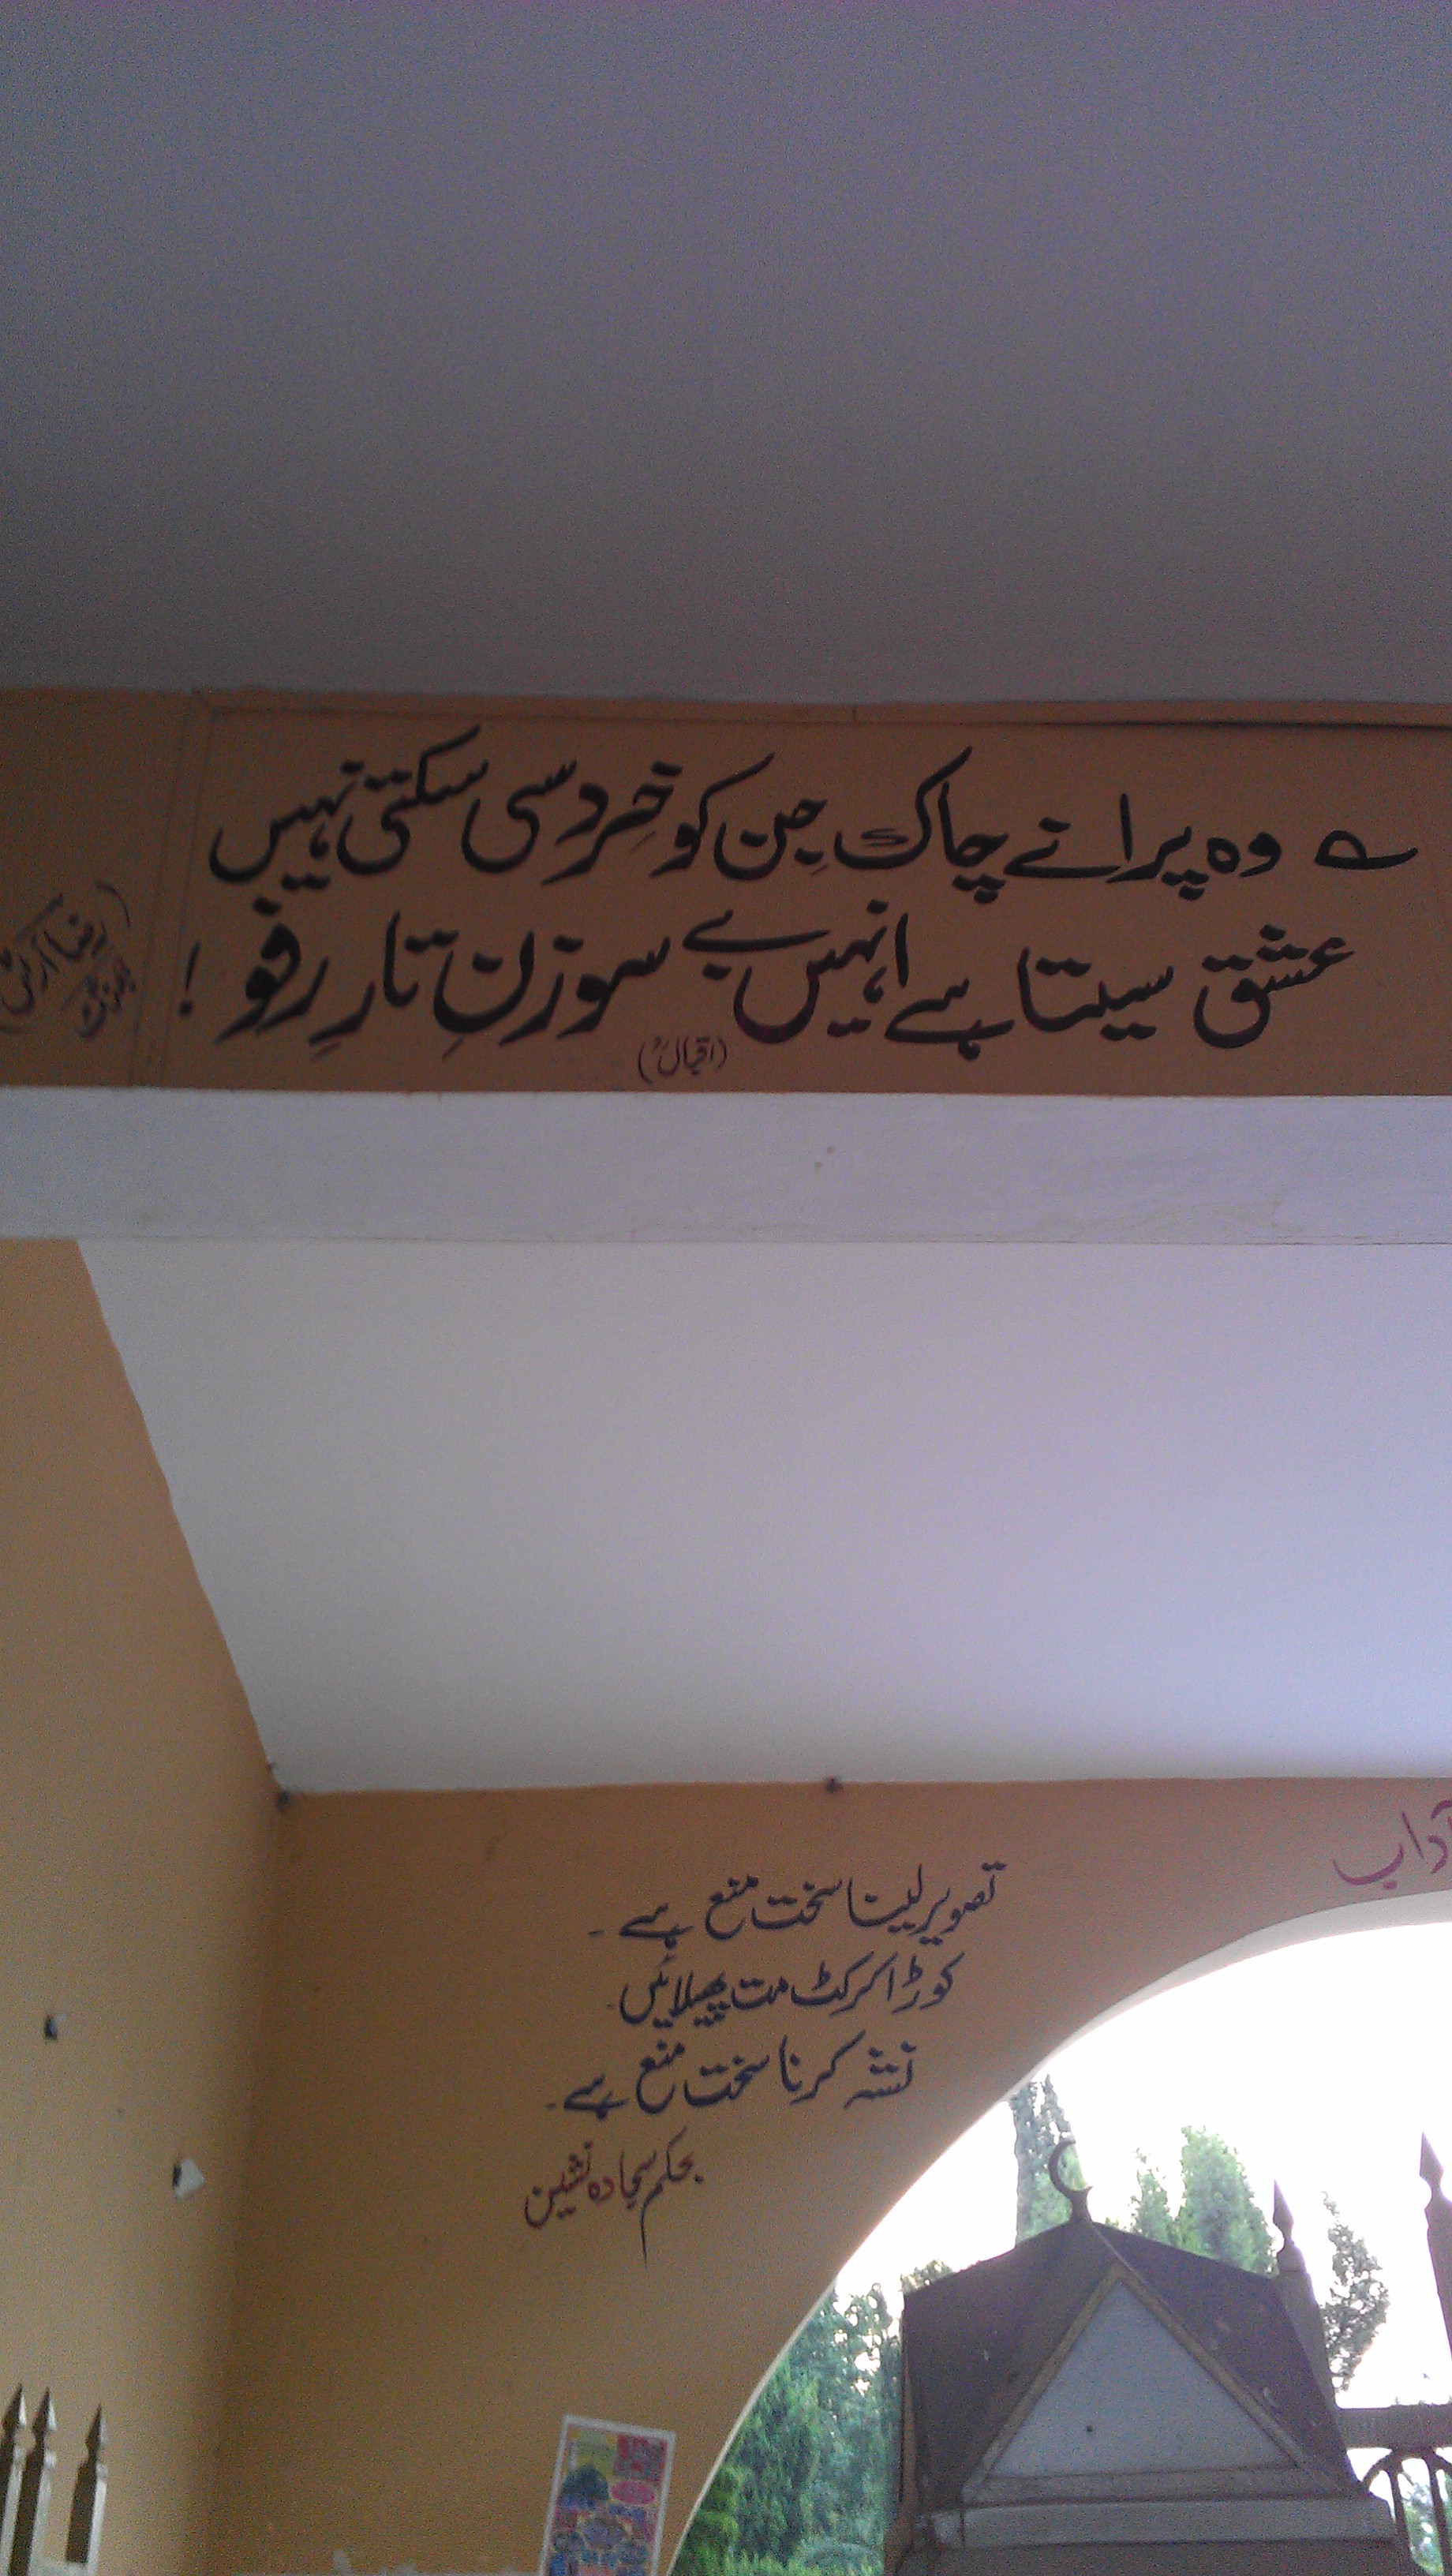 وہ پرانے چاک جن کو خرد سی سکتی نہیں
عشق سیتا ہے انہیں بے سوزنِ تارِ رفو !
(اقبالؒ)
آداب
تصویر لینا سخت منع ہے ۔
کوڑا کرکٹ مت پھیلائیں ۔
نشہ کرنا سخت منع ہے ۔
بحکم سجادہ نشین